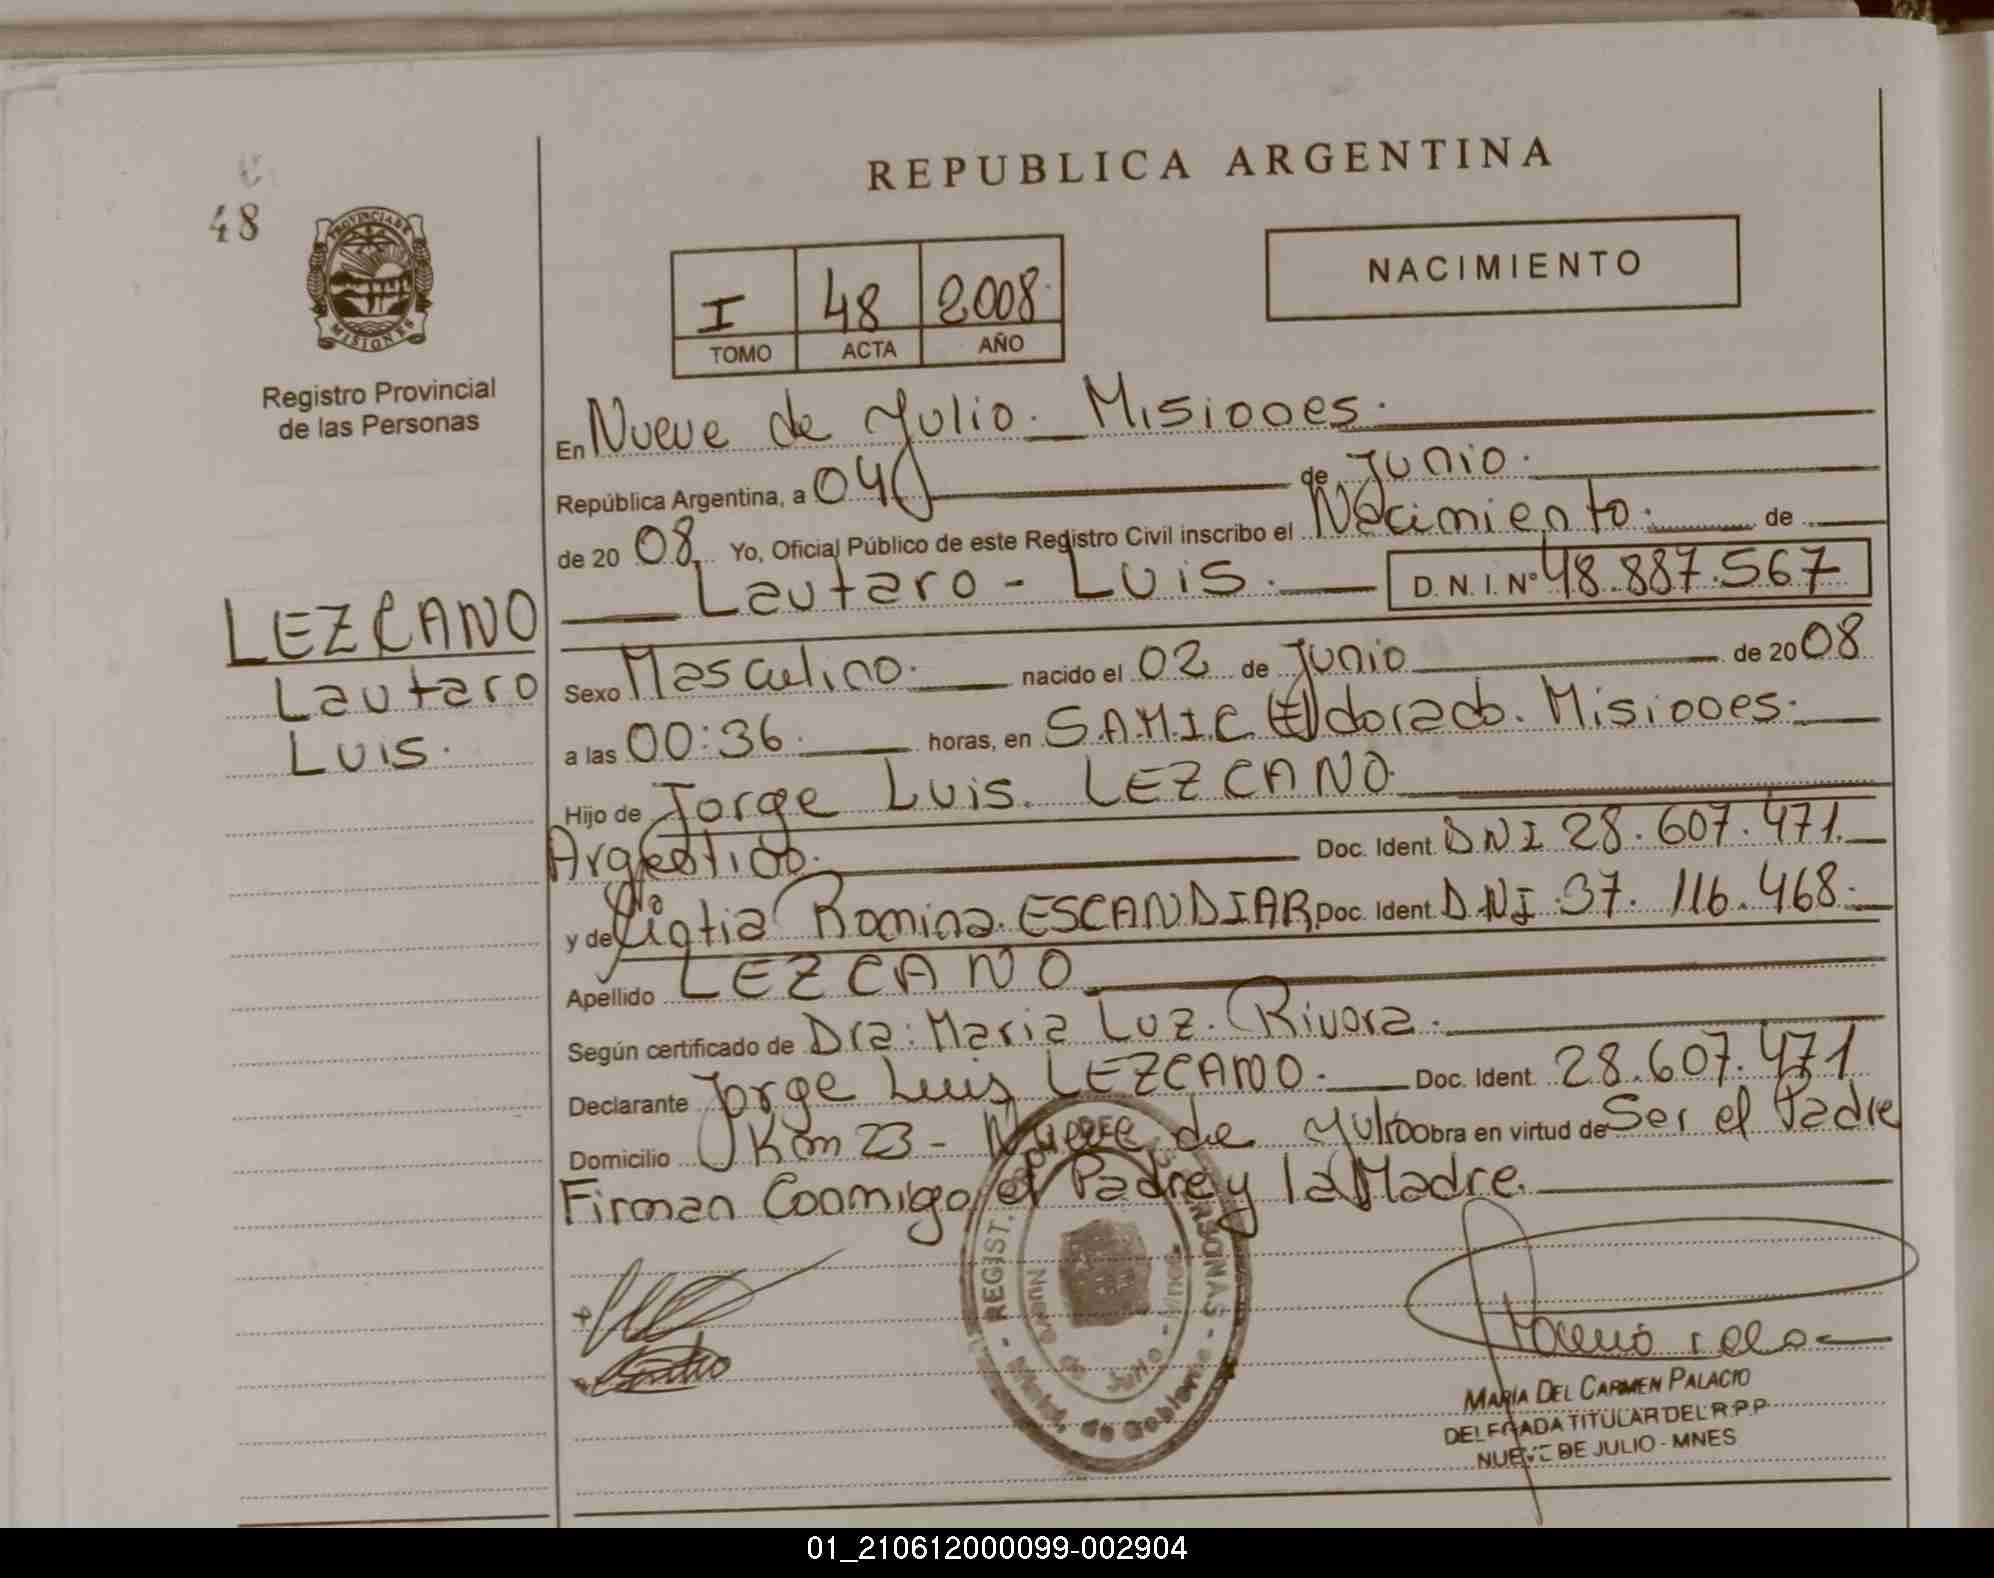 REPUBLICA ARGENTINA
48
PROVINCIA DE
MISIONES
Registro Provincial
de las Personas
NACIMIENTO
I 48 2008
TOMO ACTA AÑO
En Nueve de Julio. Misiones.
República Argentina, a 04 de Junio.
de 20 08 Yo, Oficial Público de este Registro Civil inscribo el Nacimiento. de
Lautaro - Luis. D. N. I. Nº 48.887.567
LEZCANO
Lautaro
Luis.
Sexo Masculino. nacido el 02 de Junio de 20 08
a las 00:36. horas, en S.A.M.I.C. Eldorado. Misiones.
Hijo de Jorge Luis. LEZCANO.
Argentino. Doc. Ident. DNI 28.607.471.
y de Romina. ESCANDIAR Doc. Ident. DNI 37.116.468.
Apellido LEZCANO
Según certificado de Dra. Maria Luz. Rivora.
Declarante Jorge Luis LEZCANO. Doc. Ident. 28.607.471
Domicilio Km 23 - Nueve de Julio Obra en virtud de Ser el Padre
Firman Conmigo el Padre y la Madre.
REGIST. PERSONAS
Nueve de Julio - Mnes.
de Gobierno
MARIA DEL CARMEN PALACIO
DELEGADA TITULAR DEL R.P.P
NUEVE DE JULIO - MNES
01_210612000099-002904